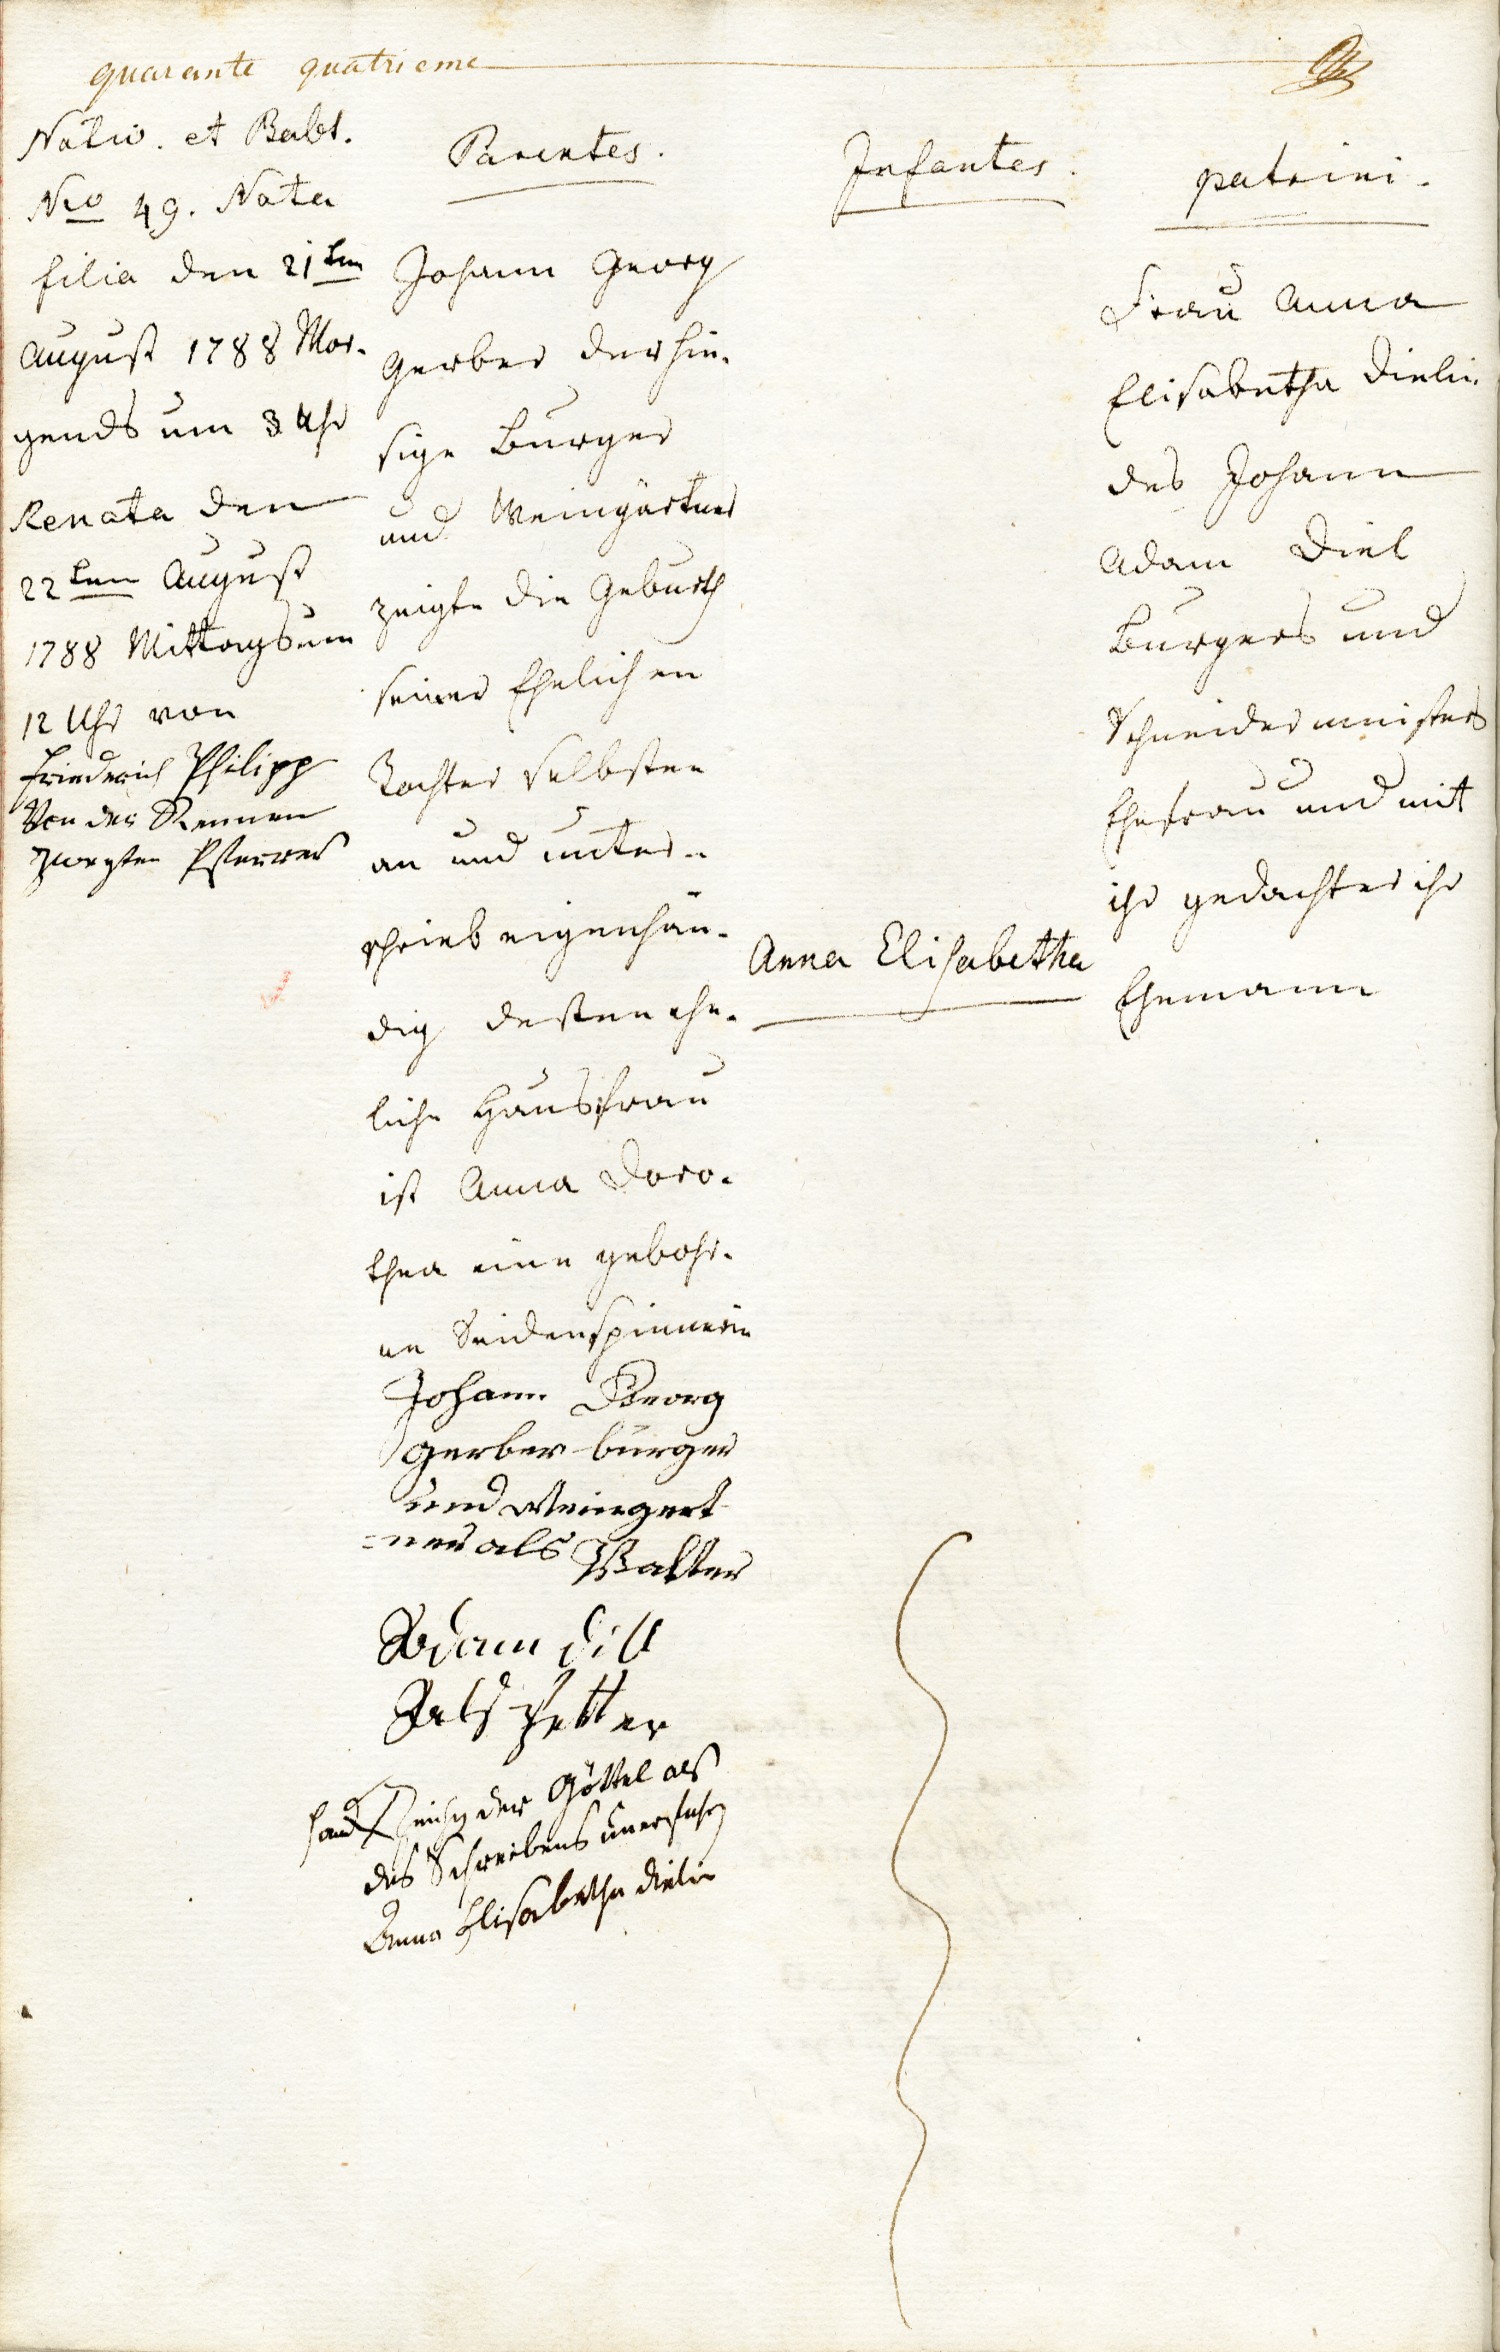 quarante quatrieme
Nativ. et Babt.
Nro 49. Nata
filia den 21ten
August 1788 Mor-
gends um 3 Uhr
Renata den
22ten August
1788 Mittags um
12 Uhr von
Friederich Philipp
Von der
zweyter Pfarrer
Parentes.
Johann Georg
Gerber der hie-
sige Burger
und Weingärtner
zeigte die Geburth
seiner Ehelichen
Tochter selbsten
an und unter-
schrieb eigenhän-
dig dessen ehe-
liche Hausfrau
ist Anna Doro-
thea eine gebohr-
ne Seidenspinnerin
Johann Georg
Gerber burger
und Weingert
=ner als Vatter
Adam Dill
Als Petter
hand Zeichen der Göttel als
des Schreibens unerfahren
Anna Elisabetha Dielin
Infantes.
Anna Elisabetha
patrini.
Frau Anna
Elisabetha Dielin
des Johann
Adam Diel
Burgers und
Schneidermeisters
Ehefrau und mit
ihr gedachter ihr
Ehemann